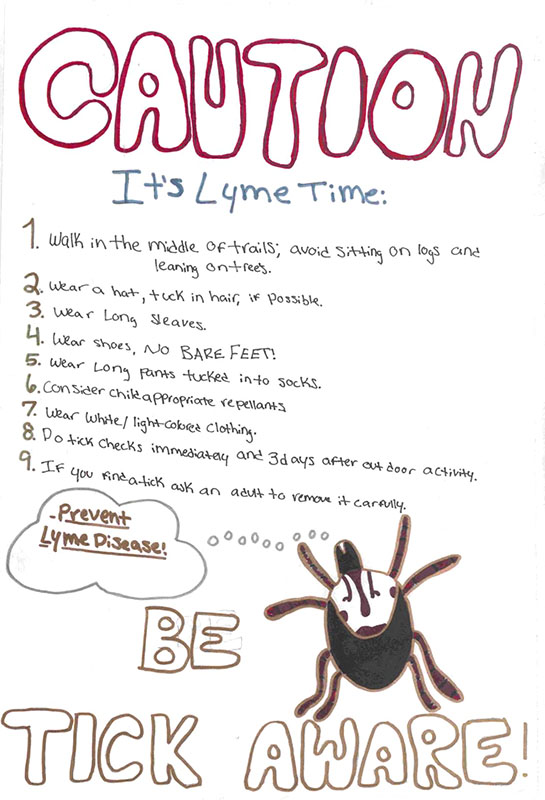 CAUTION
It's Lyme Time:
1. Walk in the middle of trails; avoid sitting on logs and
leaning on trees.
2. Wear a hat, tuck in hair, if possible.
3. Wear Long sleaves.
4. Wear shoes, NO BARE FEET!
5. Wear Long pants tucked into socks.
6. Consider child appropriate repellants
7. Wear white/light-colored clothing.
8. Do tick checks immediately and 3 days after outdoor activity.
9. If you find a tick ask an adult to remove it carfully.
-Prevent
Lyme Disease!
BE
TICK AWARE!